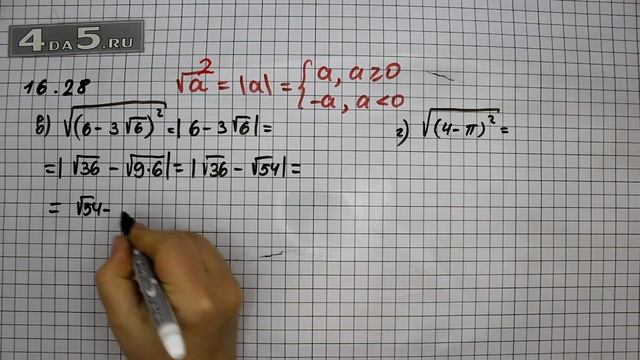 4DA5.RU
16.28
√a² = |a| = { a, a≥0
-a, a<0
в) √(6-3√6)² = |6-3√6| =
= |√36 - √9·6| = |√36 - √54| =
= √54 -
г) √(4-π)² =